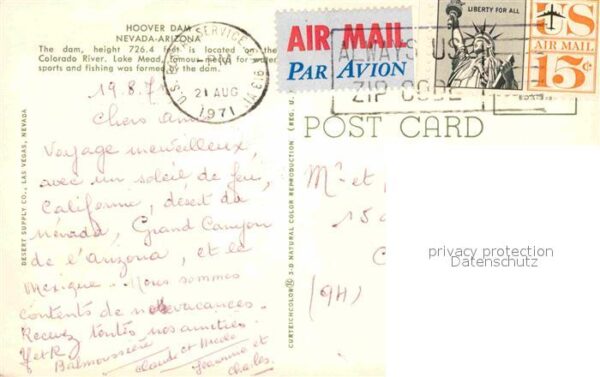 HOOVER DAM
NEVADA-ARIZONA
The dam, height 726.4 feet is located on the
Colorado River. Lake Mead, famous mecca for water
sports and fishing was formed by the dam.
AIR MAIL
PAR AVION
LIBERTY FOR ALL
US
AIR MAIL
15¢
U.S. SERVICE
PM
21 AUG
1971
ALWAYS USE
ZIP CODE
POST CARD
19.8.71
Chers amis
Voyage merveilleux,
avec un soleil de feu,
Californie, désert du
Névada, Grand Canyon
de l'Arizona, et le
Mexique. Nous sommes
contents de nos vacances.
Recevez toutes nos amitiés
Y et R
Claude et
Jeannine et
Charles.
DESERT SUPPLY CO., LAS VEGAS, NEVADA
CURTEICHCOLOR ® 3-D NATURAL COLOR REPRODUCTION (REG. U.S.
Mr et
15
(94)
privacy protection
Datenschutz